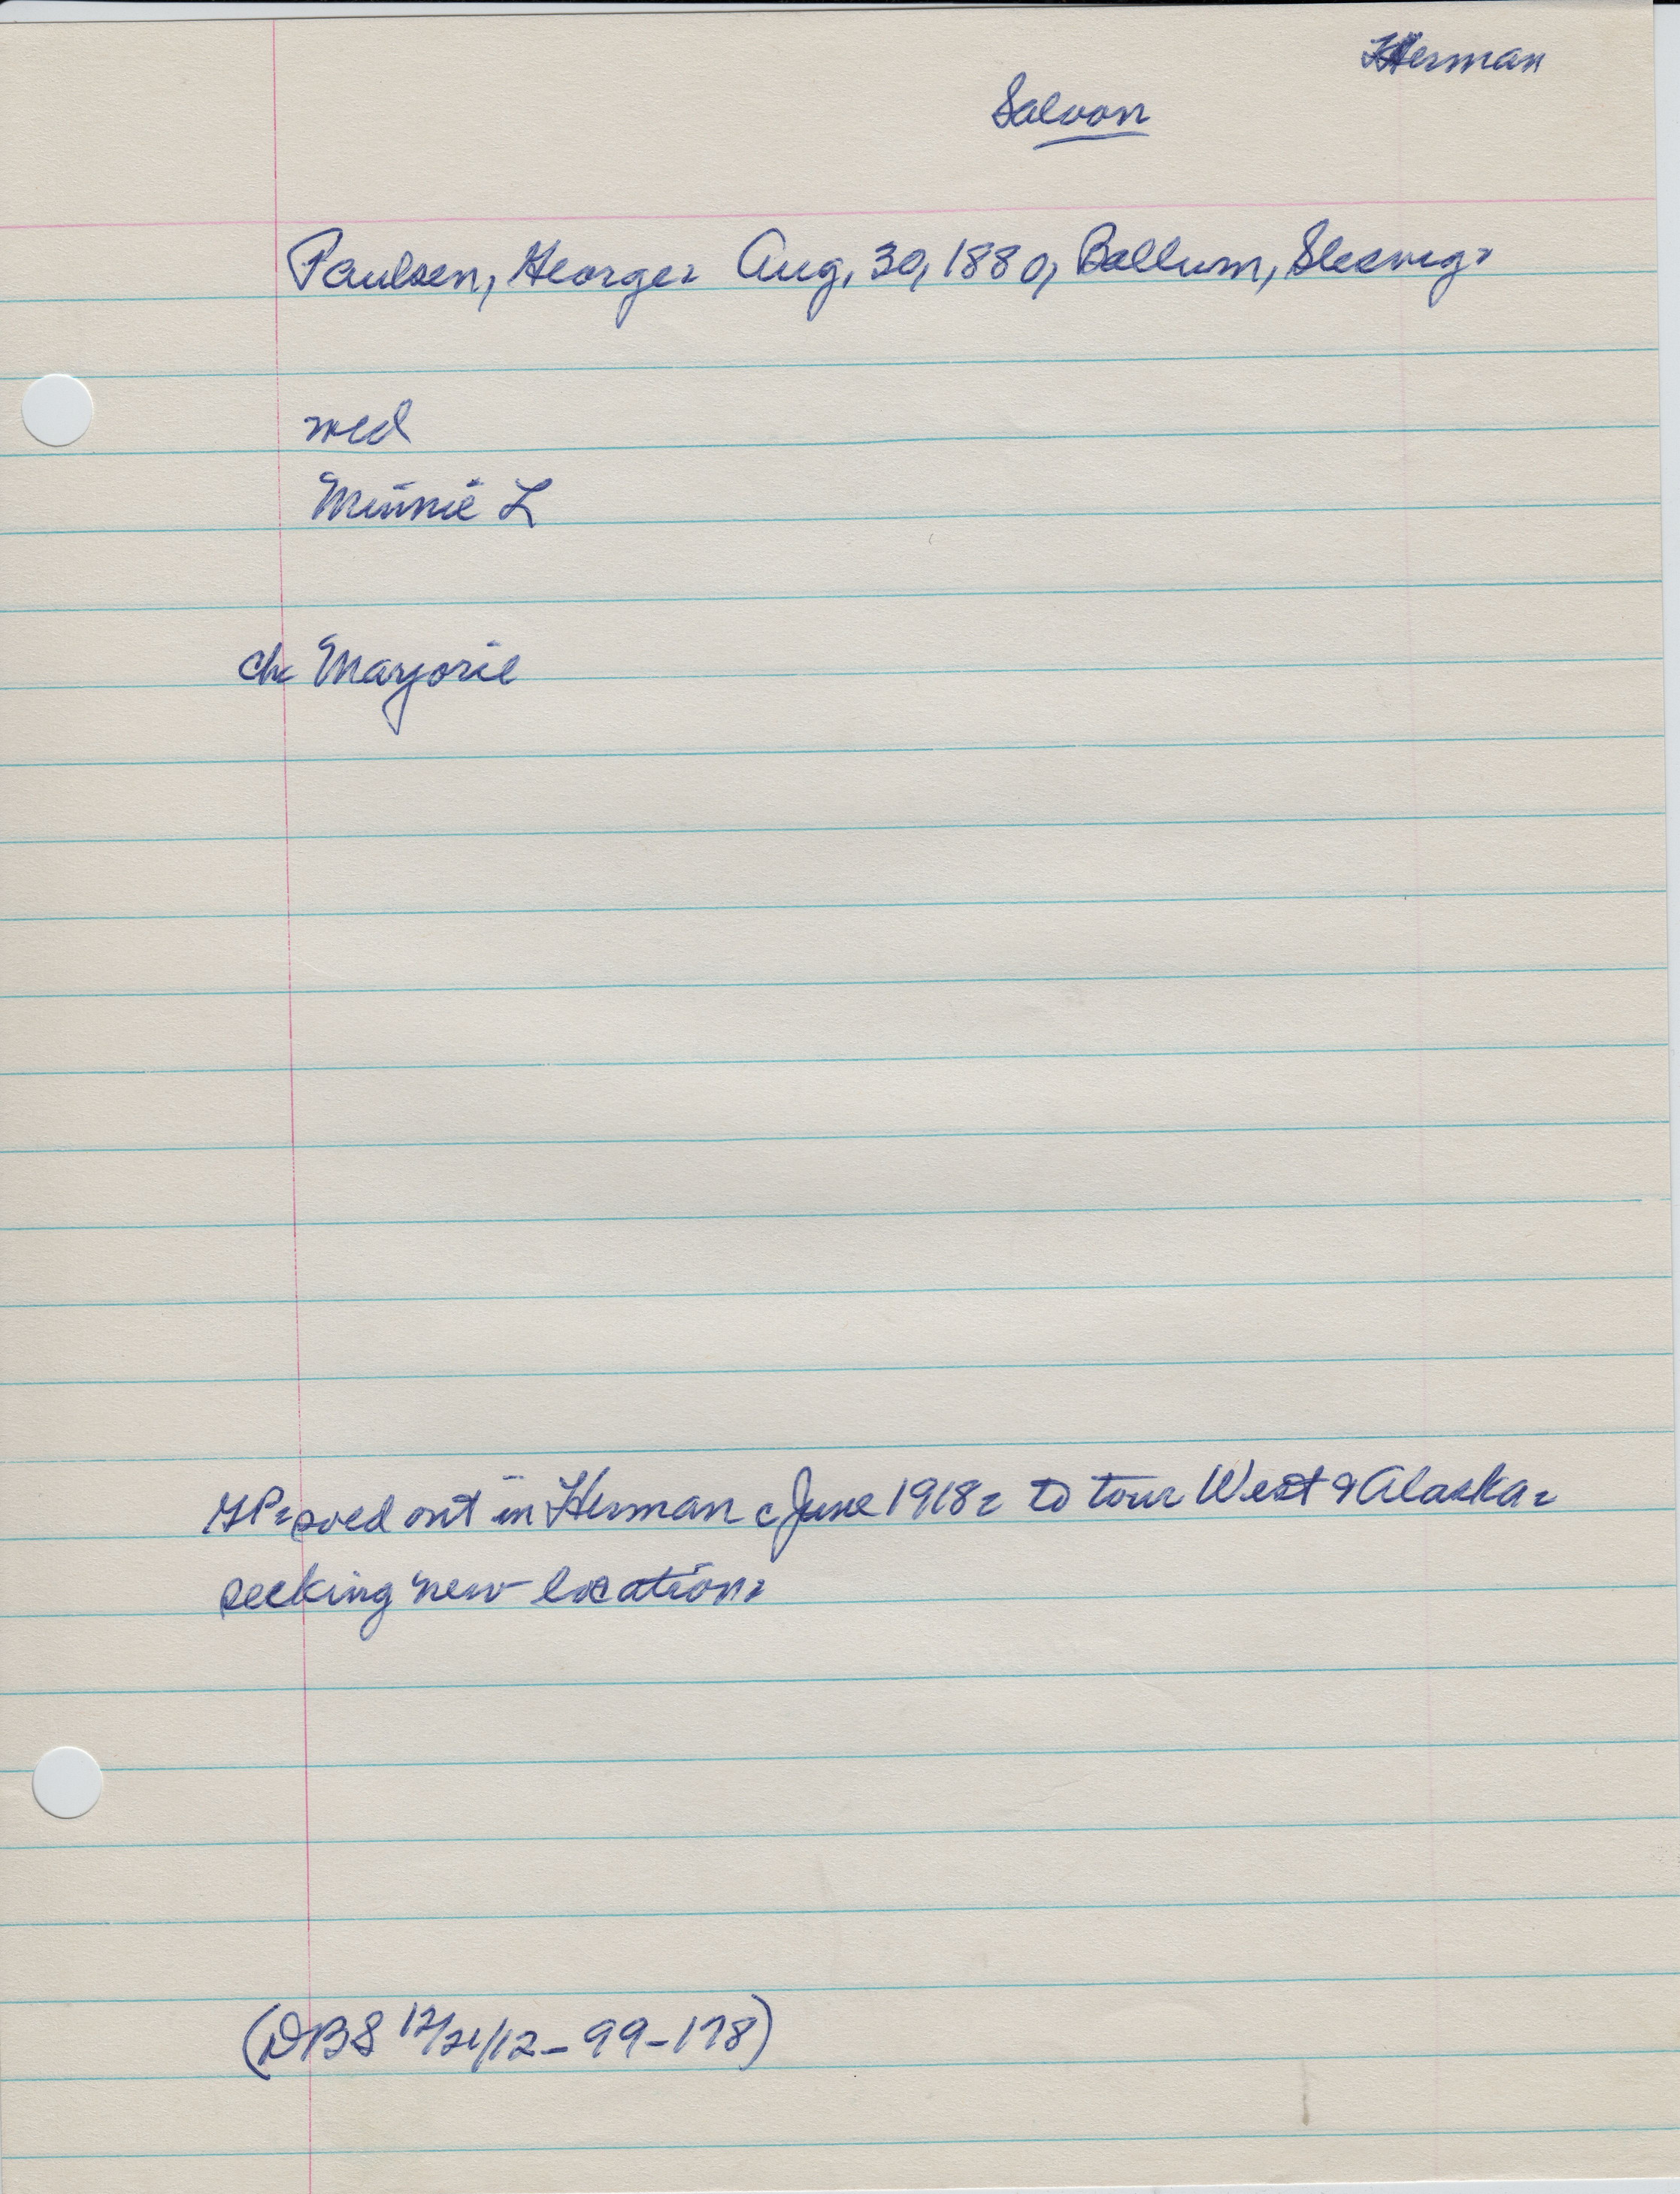 Herman
Saloon
Paulsen, George. Aug. 30, 1880, Ballum, Slesvig.
wed
Minnie L
ch Marjorie
GP. sold out in Herman c June 1918. to tour West & Alaska.
seeking new location.
(DBS 12/21/12-99-178)